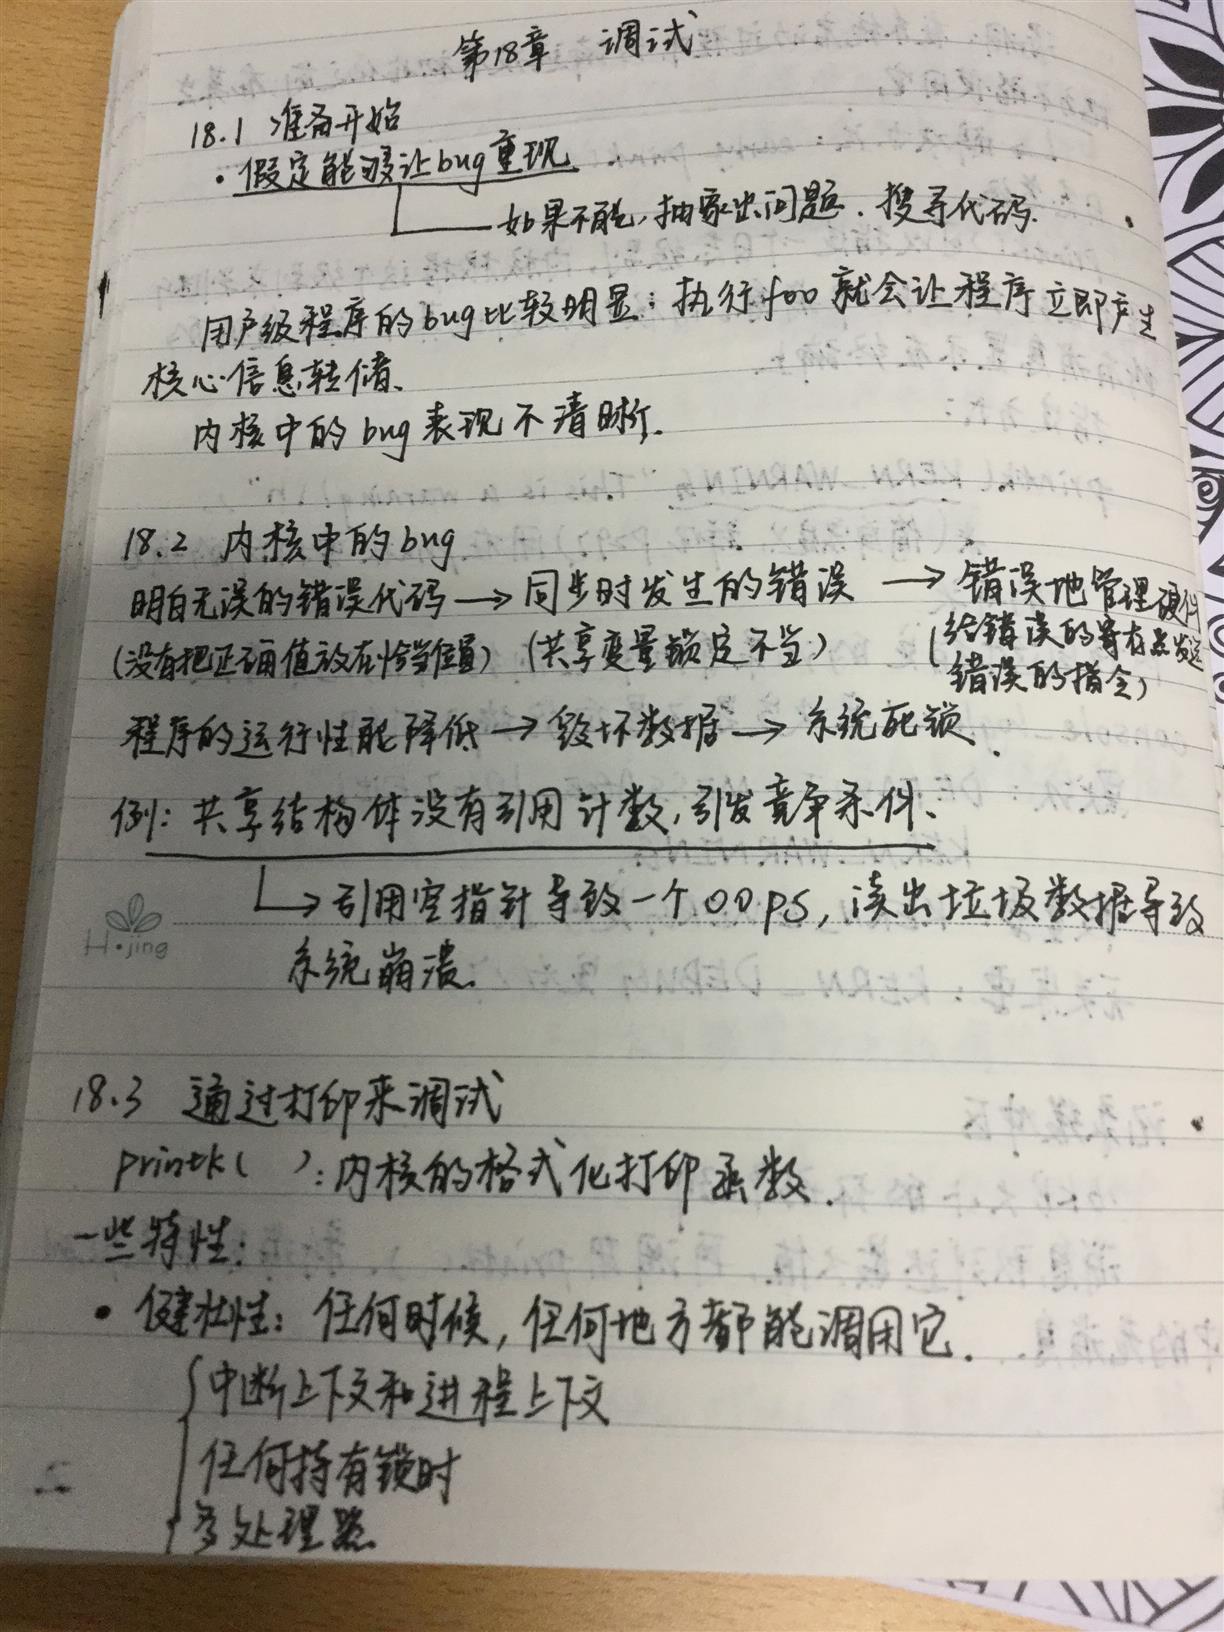 第18章 调试
18.1 准备开始
· 假定能够让bug重现.
如果不能,抽象出问题.搜寻代码.
用户级程序的bug比较明显:执行foo就会让程序立即产生
核心信息转储.
内核中的bug表现不清晰.
18.2 内核中的bug
明白无误的错误代码→同步时发生的错误→错误地管理硬件
(没有把正确值放在恰当位置) (共享变量锁定不当) (给错误的寄存器发送
错误的指令)
程序的运行性能降低→毁坏数据→系统死锁.
例:共享结构体没有引用计数,引发竞争条件.
→引用空指针导致一个oops,读出垃圾数据导致
系统崩溃.
H·jing
18.3 通过打印来调试
printk( ):内核的格式化打印函数.
一些特性:
· 健壮性:任何时候,任何地方都能调用它.
中断上下文和进程上下文
任何持有锁时
多处理器